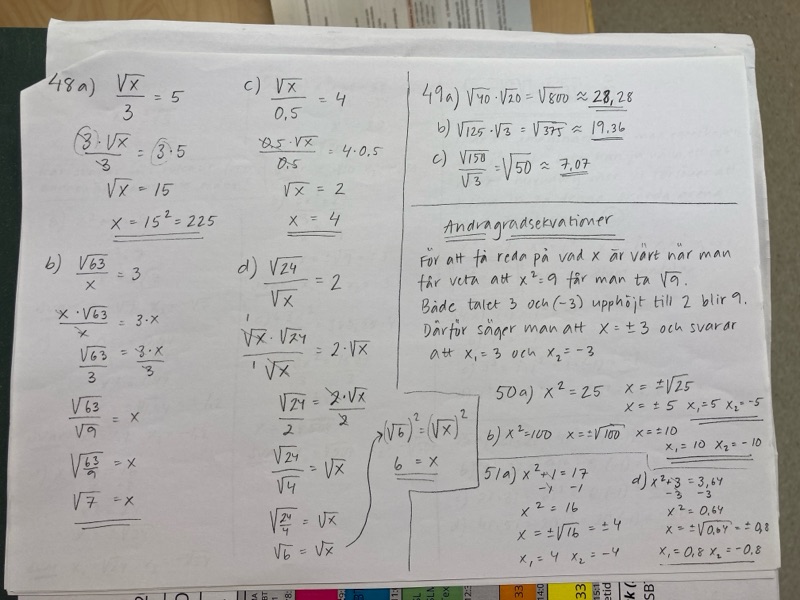 48a) √x/3 = 5
3·√x/3 = 3·5
√x = 15
x = 15² = 225
b) √63/x = 3
x·√63/x = 3·x
√63/3 = 3·x/3
√63/√9 = x
√63/9 = x
√7 = x
c) √x/0,5 = 4
0,5·√x/0,5 = 4·0,5
√x = 2
x = 4
d) √24/√x = 2
1 √x·√24/1 √x = 2·√x
√24/2 = 2·√x/2
√24/√4 = √x
√24/4 = √x
√6 = √x
(√6)² = (√x)²
6 = x
49a) √40·√20 = √800 ≈ 28,28
b) √125·√3 = √375 ≈ 19,36
c) √150/√3 = √50 ≈ 7,07
Andragradsekvationer
För att få reda på vad x är värt när man
får veta att x²=9 får man ta √9.
Både talet 3 och (-3) upphöjt till 2 blir 9.
Därför säger man att x = ±3 och svarar
att x₁=3 och x₂=-3
50a) x² = 25 x = ±√25
x = ±5 x₁=5 x₂=-5
b) x²=100 x=±√100 x=±10
x₁=10 x₂=-10
51a) x²+1=17
-1 -1
x² = 16
x = ±√16 = ±4
x₁=4 x₂=-4
d) x²+3 = 3,64
-3 -3
x² = 0,64
x = ±√0,64 = ±0,8
x₁=0,8 x₂=-0,8